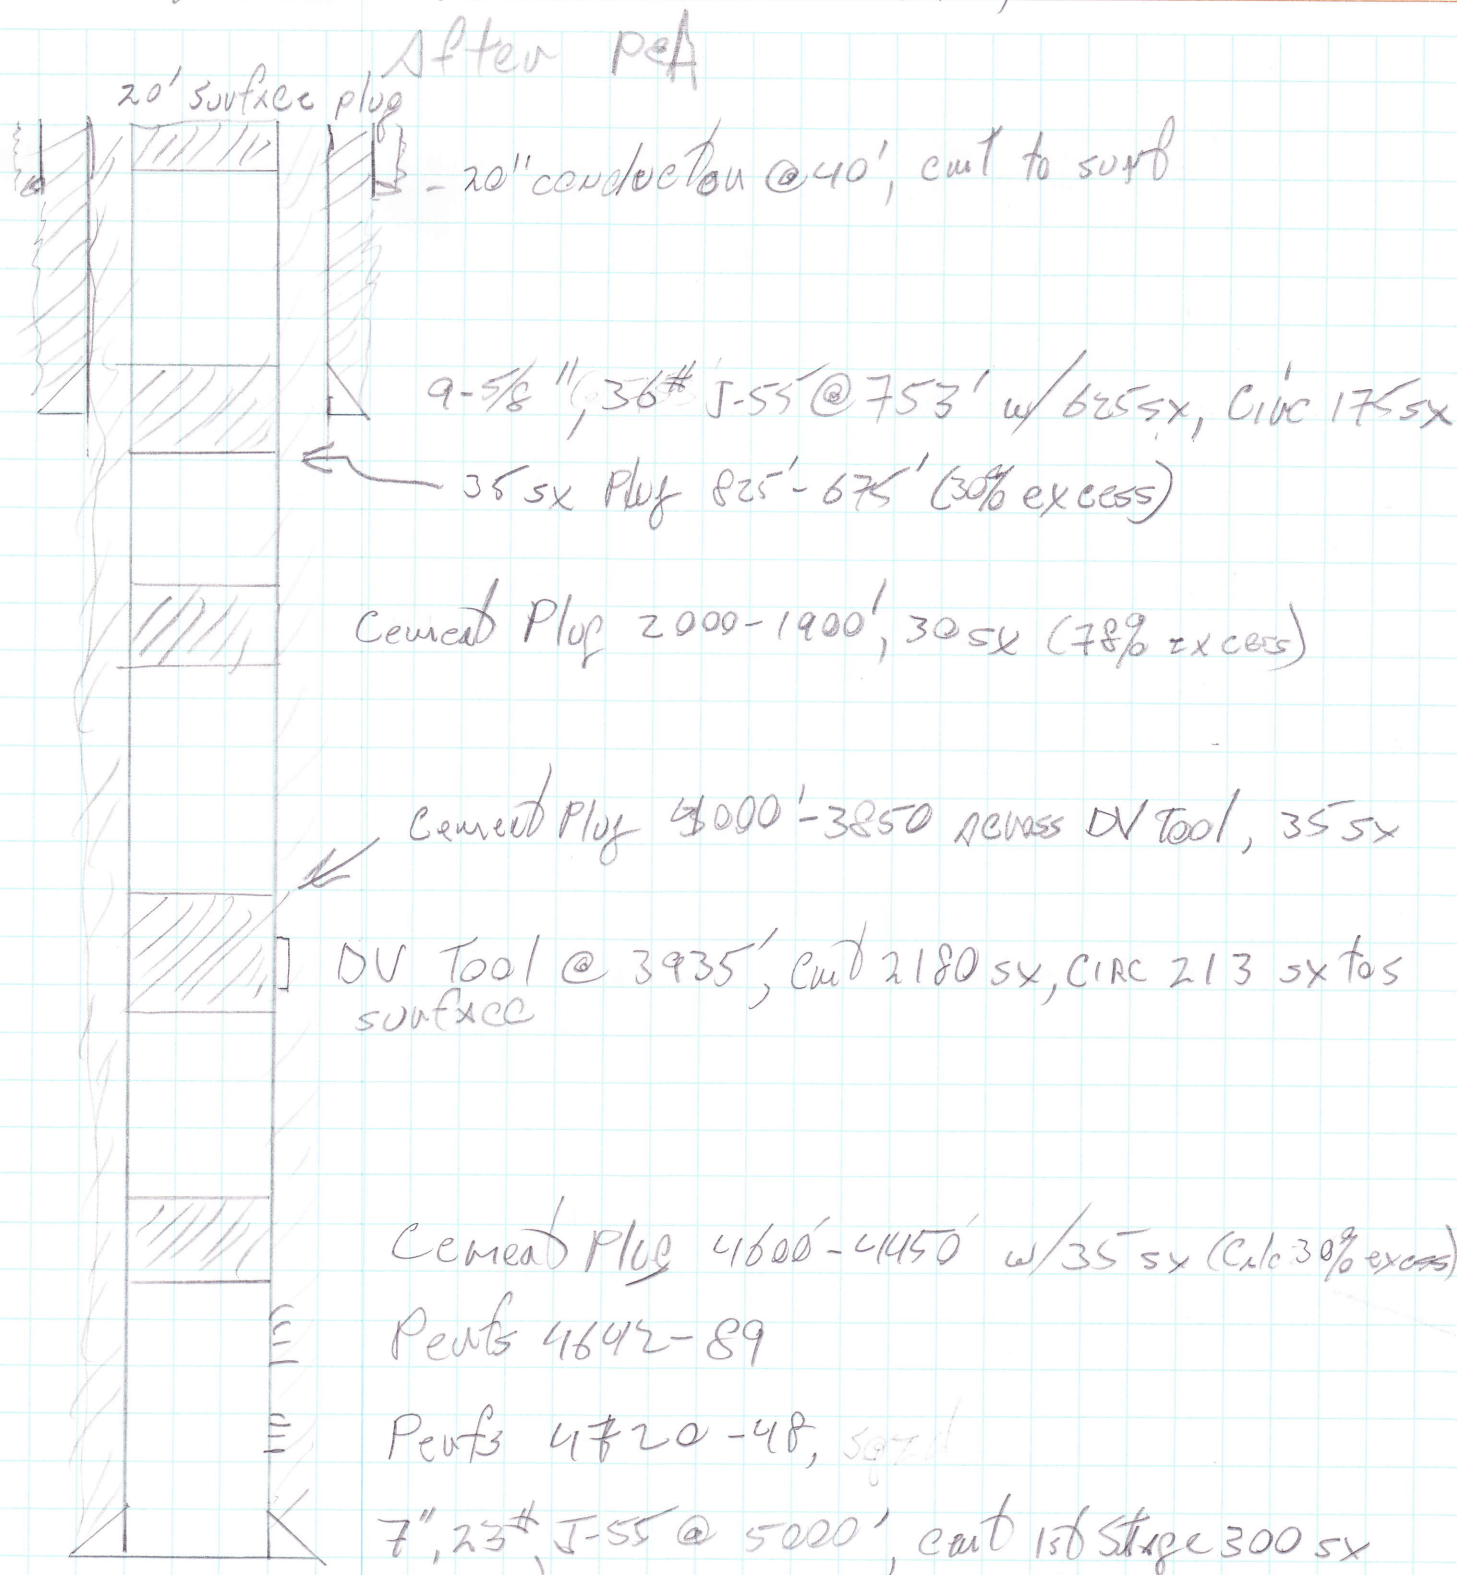 After P&A
20' surface plug
- 20" conductor @ 40', cmt to surf
9-5/8", 36# J-55 @ 753' w/ 625 sx, Circ 175 sx
35 sx Plug 825' - 675' (30% excess)
Cement Plug 2000-1900', 30 sx (78% excess)
Cement Plug 4000'-3850 across DV Tool, 35 sx
DV Tool @ 3935', cmt 2180 sx, CIRC 213 sx to s
surface
Cement Plug 4600'-4450' w/ 35 sx (Calc 30% excess)
Perfs 4642-89
Perfs 4720-48, sqzd
7", 23#, J-55 @ 5000', cmt 1st Stage 300 sx